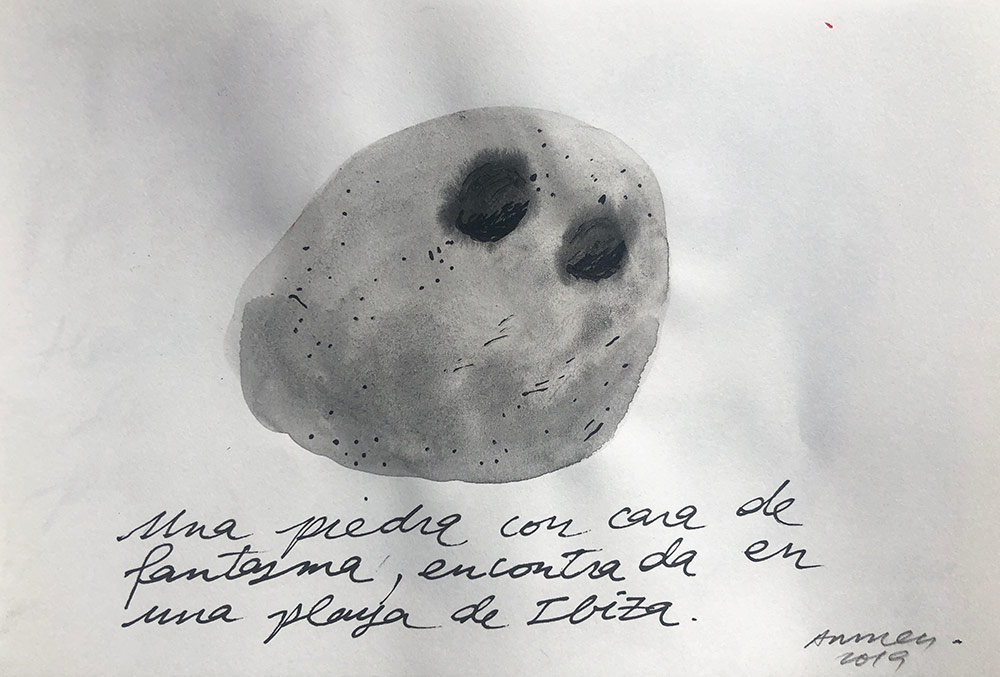 Una piedra con cara de
fantasma, encontrada en
una playa de Ibiza.
2019